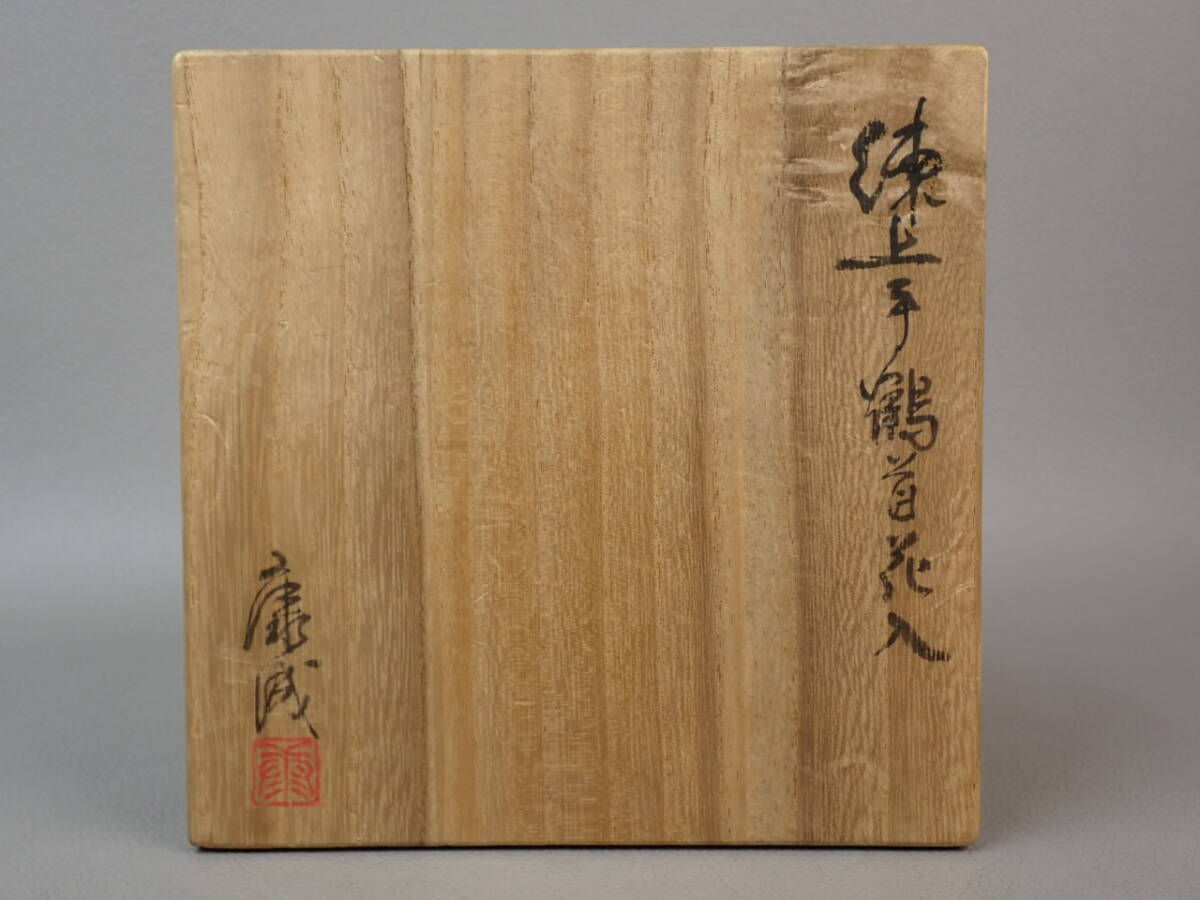 練上手鶴首花入
康誠